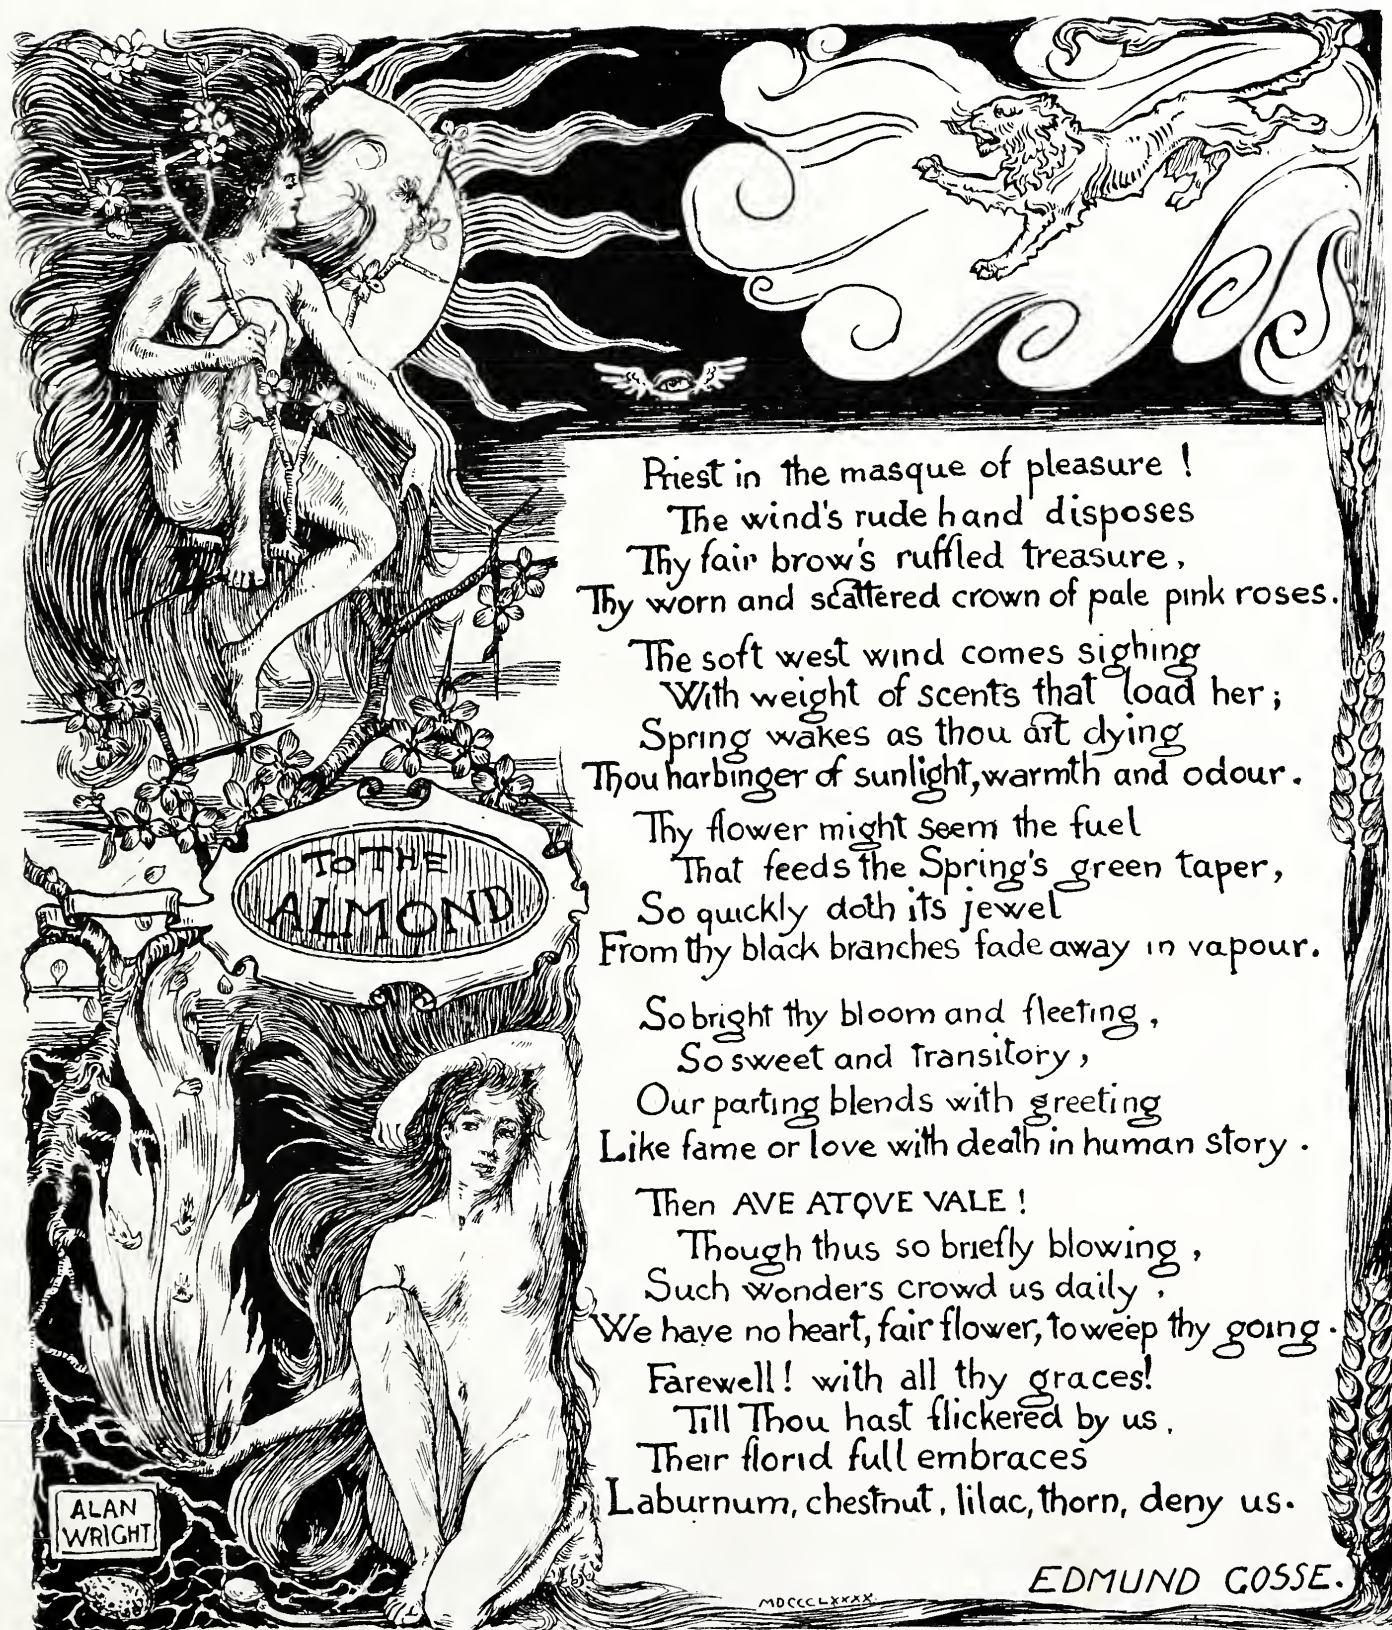 TO THE
ALMOND
Priest in the masque of pleasure !
The wind's rude hand disposes
Thy fair brow's ruffled treasure,
Thy worn and scattered crown of pale pink roses.
The soft west wind comes sighing
With weight of scents that load her ;
Spring wakes as thou art dying
Thou harbinger of sunlight, warmth and odour.
Thy flower might seem the fuel
That feeds the Spring's green taper,
So quickly doth its jewel
From thy black branches fade away in vapour.
So bright thy bloom and fleeting,
So sweet and transitory,
Our parting blends with greeting
Like fame or love with death in human story.
Then AVE ATQVE VALE !
Though thus so briefly blowing,
Such wonders crowd us daily,
We have no heart, fair flower, to weep thy going.
Farewell! with all thy graces!
Till Thou hast flickered by us,
Their florid full embraces
Laburnum, chestnut, lilac, thorn, deny us.
EDMUND GOSSE.
ALAN
WRIGHT
MDCCCLXXXX